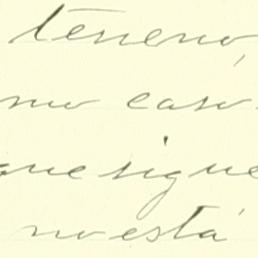 terreno,
mo caso.
que sigue
no está